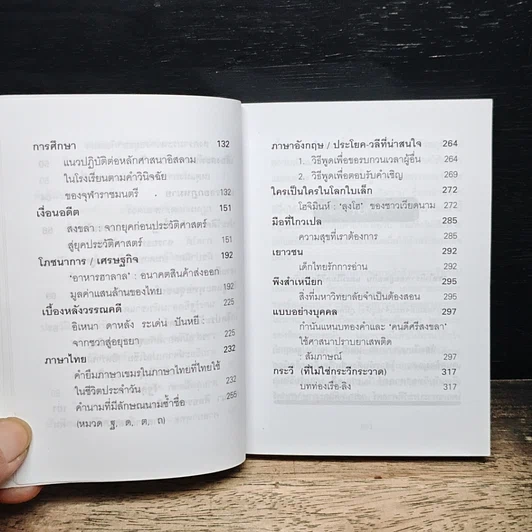 การศึกษา 132
แนวปฏิบัติต่อหลักศาสนาอิสลาม
ในโรงเรียนตามคำวินิจฉัย
ของจุฬาราชมนตรี 132
เงื่อนอดีต 151
สงขลา : จากยุคก่อนประวัติศาสตร์ 151
สู่ยุคประวัติศาสตร์
โภชนาการ / เศรษฐกิจ 192
'อาหารฮาลาล' : อนาคตสินค้าส่งออก
มูลค่าแสนล้านของไทย 192
เบื้องหลังวรรณคดี 225
อิเหนา ดาหลัง ระเด่น ปันหยี 225
จากชวาสู่อยุธยา
ภาษาไทย 232
คำยืมภาษาเขมรในภาษาไทยที่ไทยใช้ 232
ในชีวิตประจำวัน
คำนามที่มีลักษณนามซ้ำชื่อ
(หมวด ฐ, ด, ต, ถ)
ภาษาอังกฤษ / ประโยค-วลีที่น่าสนใจ 264
1. วิธีพูดเพื่อขอรบกวนเวลาผู้อื่น
2. วิธีพูดเพื่อตอบรับคำเชิญ 264
ใครเป็นใครในโลกใบเล็ก 272
โฮจิมินห์ : 'ลุงโฮ' ของชาวเวียดนาม 272
มือที่ไกวเปล 285
ความสุขที่เราต้องการ 285
เยาวชน 292
เด็กไทยรักการอ่าน 292
พึงสำเหนียก 295
สิ่งที่มหาวิทยาลัยจำเป็นต้องสอน 295
แบบอย่างบุคคล
กำนันแหนบทองคำและ 'คนดีศรีสงขลา'
ใช้ศาสนาปราบยาเสพติด
: สัมภาษณ์ 297
กระวี (ที่ไม่ใช่กระวีกระวาด) 317
บทท่องเรื่อ-ลิง 317